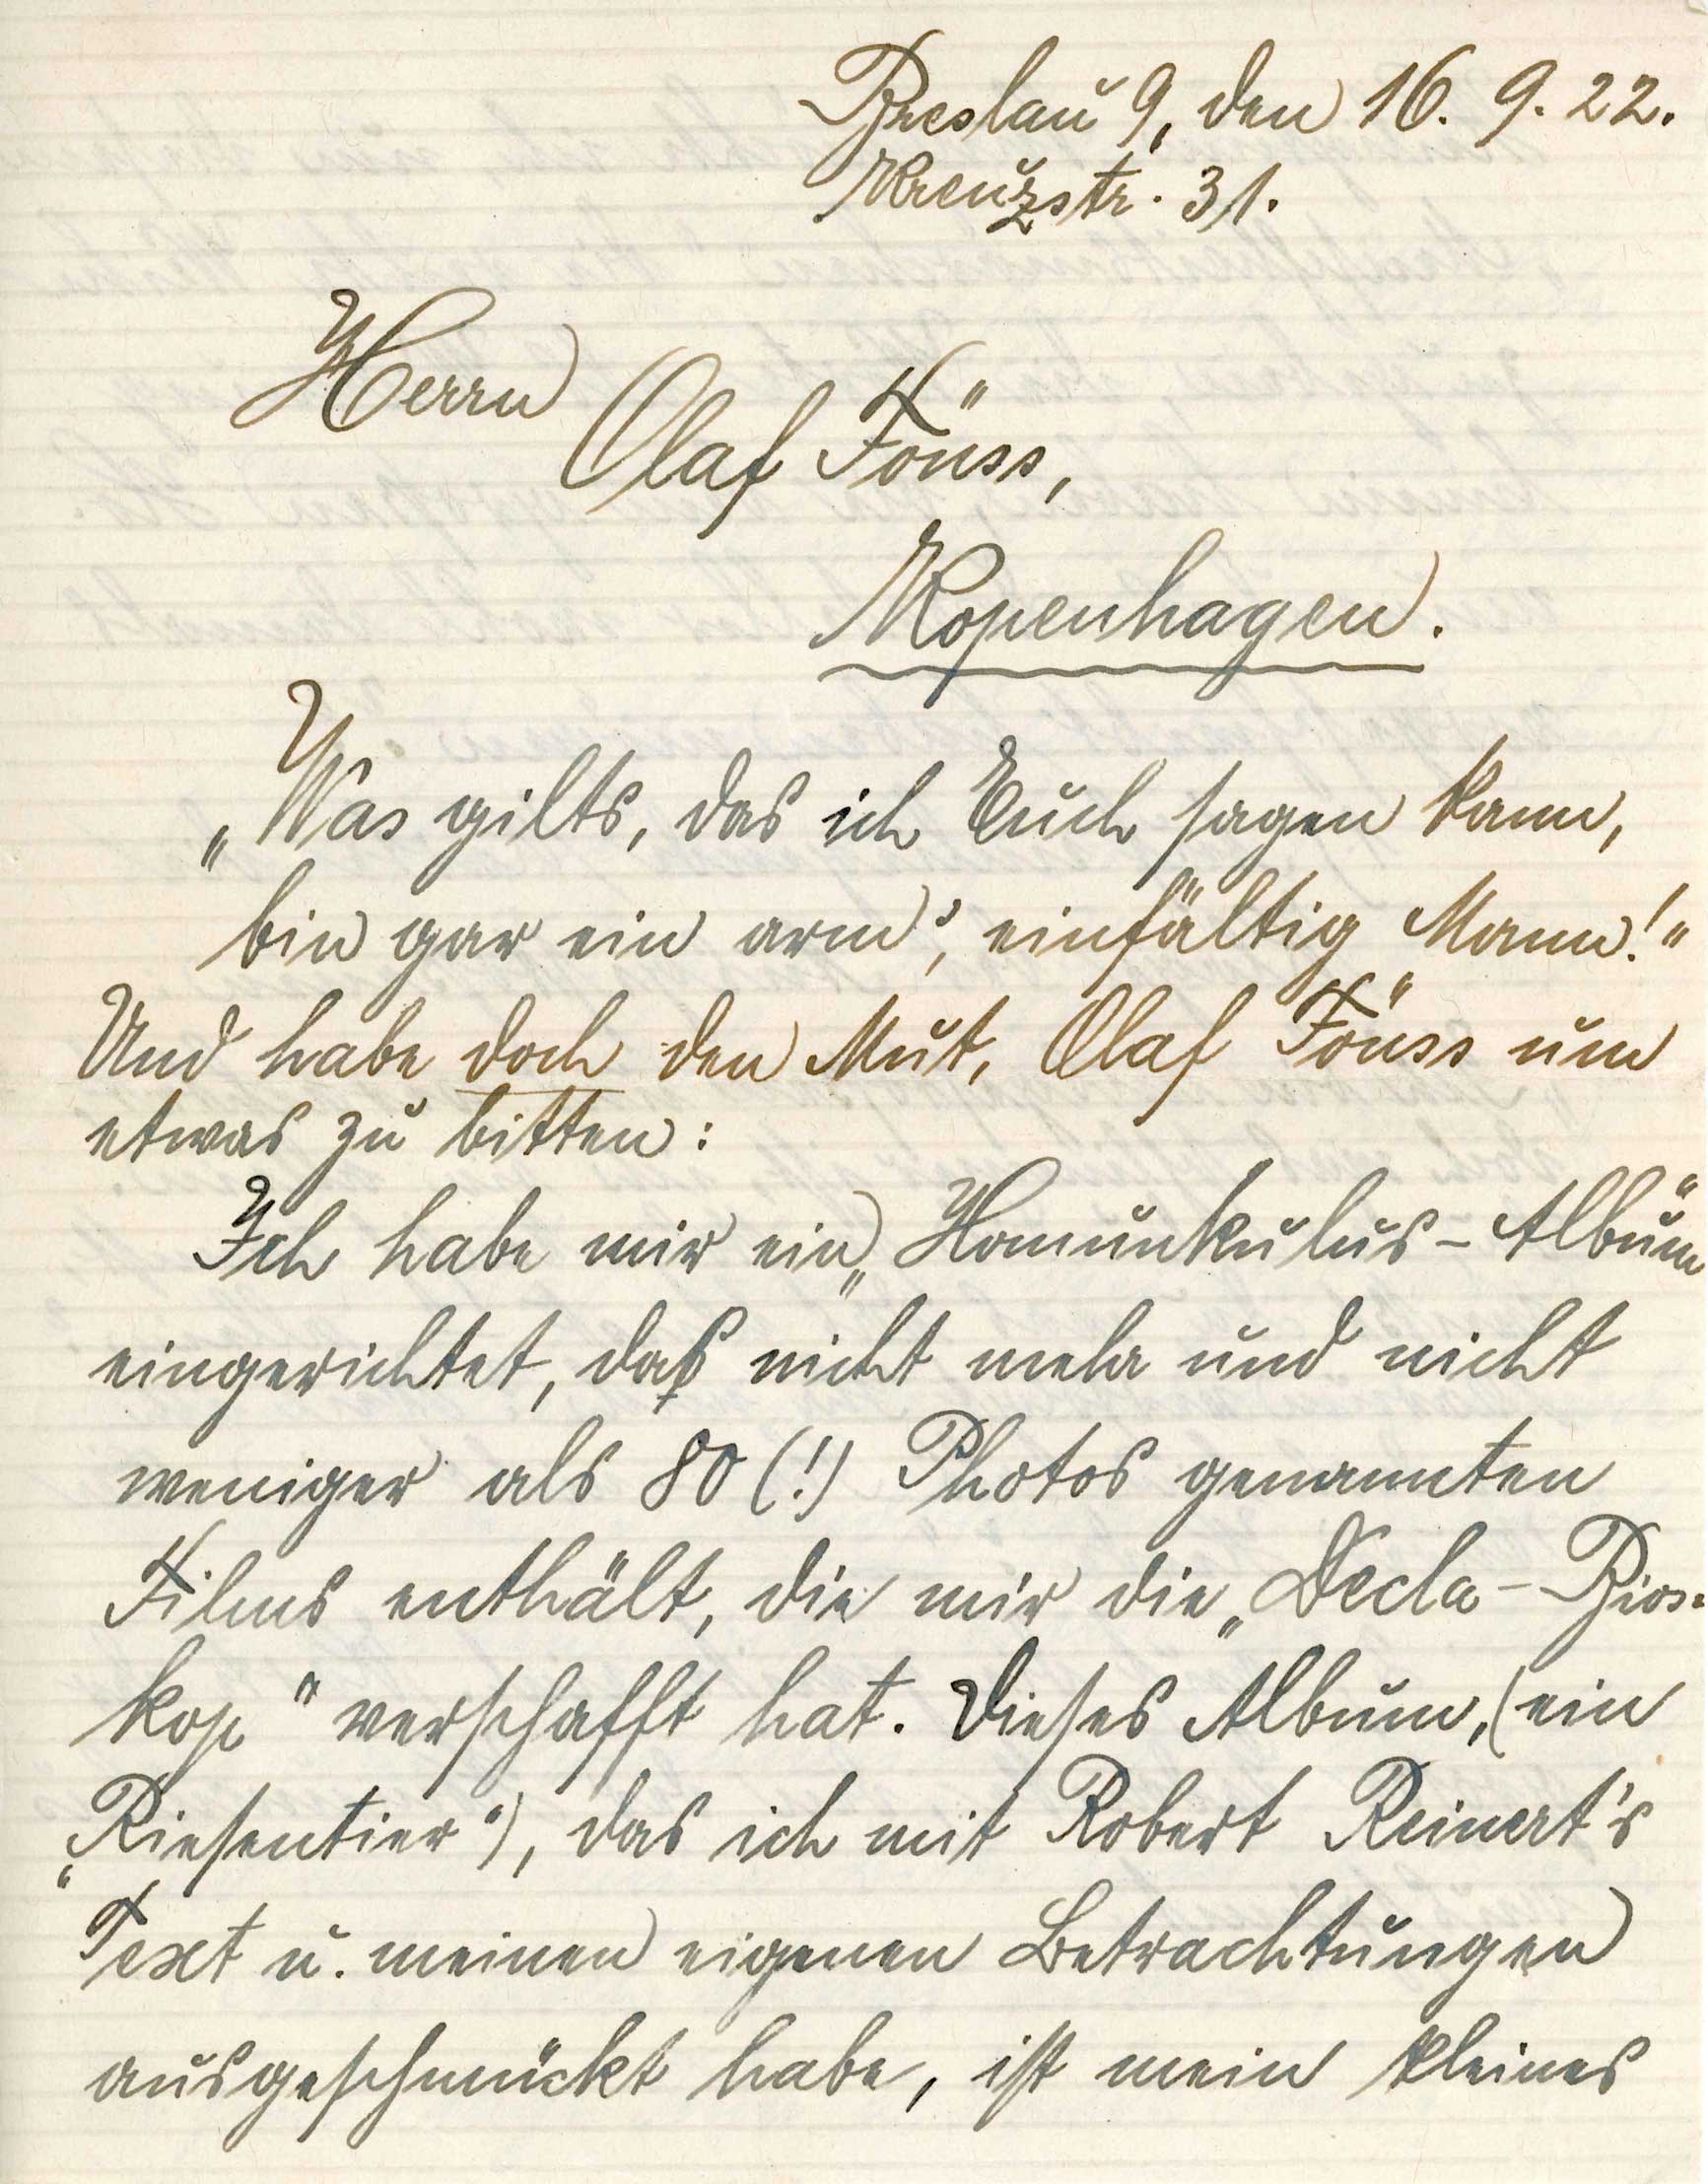 Breslau 9, den 16. 9. 22.
Kreuzstr. 31.
Herrn
Olaf Fönss,
Kopenhagen.
„Was gilts, das ich Euch sagen kann,
bin gar ein arm', einfältig Mann!“
Und habe doch den Mut, Olaf Fönss um
etwas zu bitten:
Ich habe mir ein „Homunkulus-Album“
eingerichtet, daß nicht mehr und nicht
weniger als 80 (!) Photos genannten
Films enthält, die mir die „Decla-Bios-
kop“ verschafft hat. Dieses Album, (ein
„Riesentier“), das ich mit Robert Reinert's
Text u. meinen eigenen Betrachtungen
ausgeschmückt habe, ist mein kleines